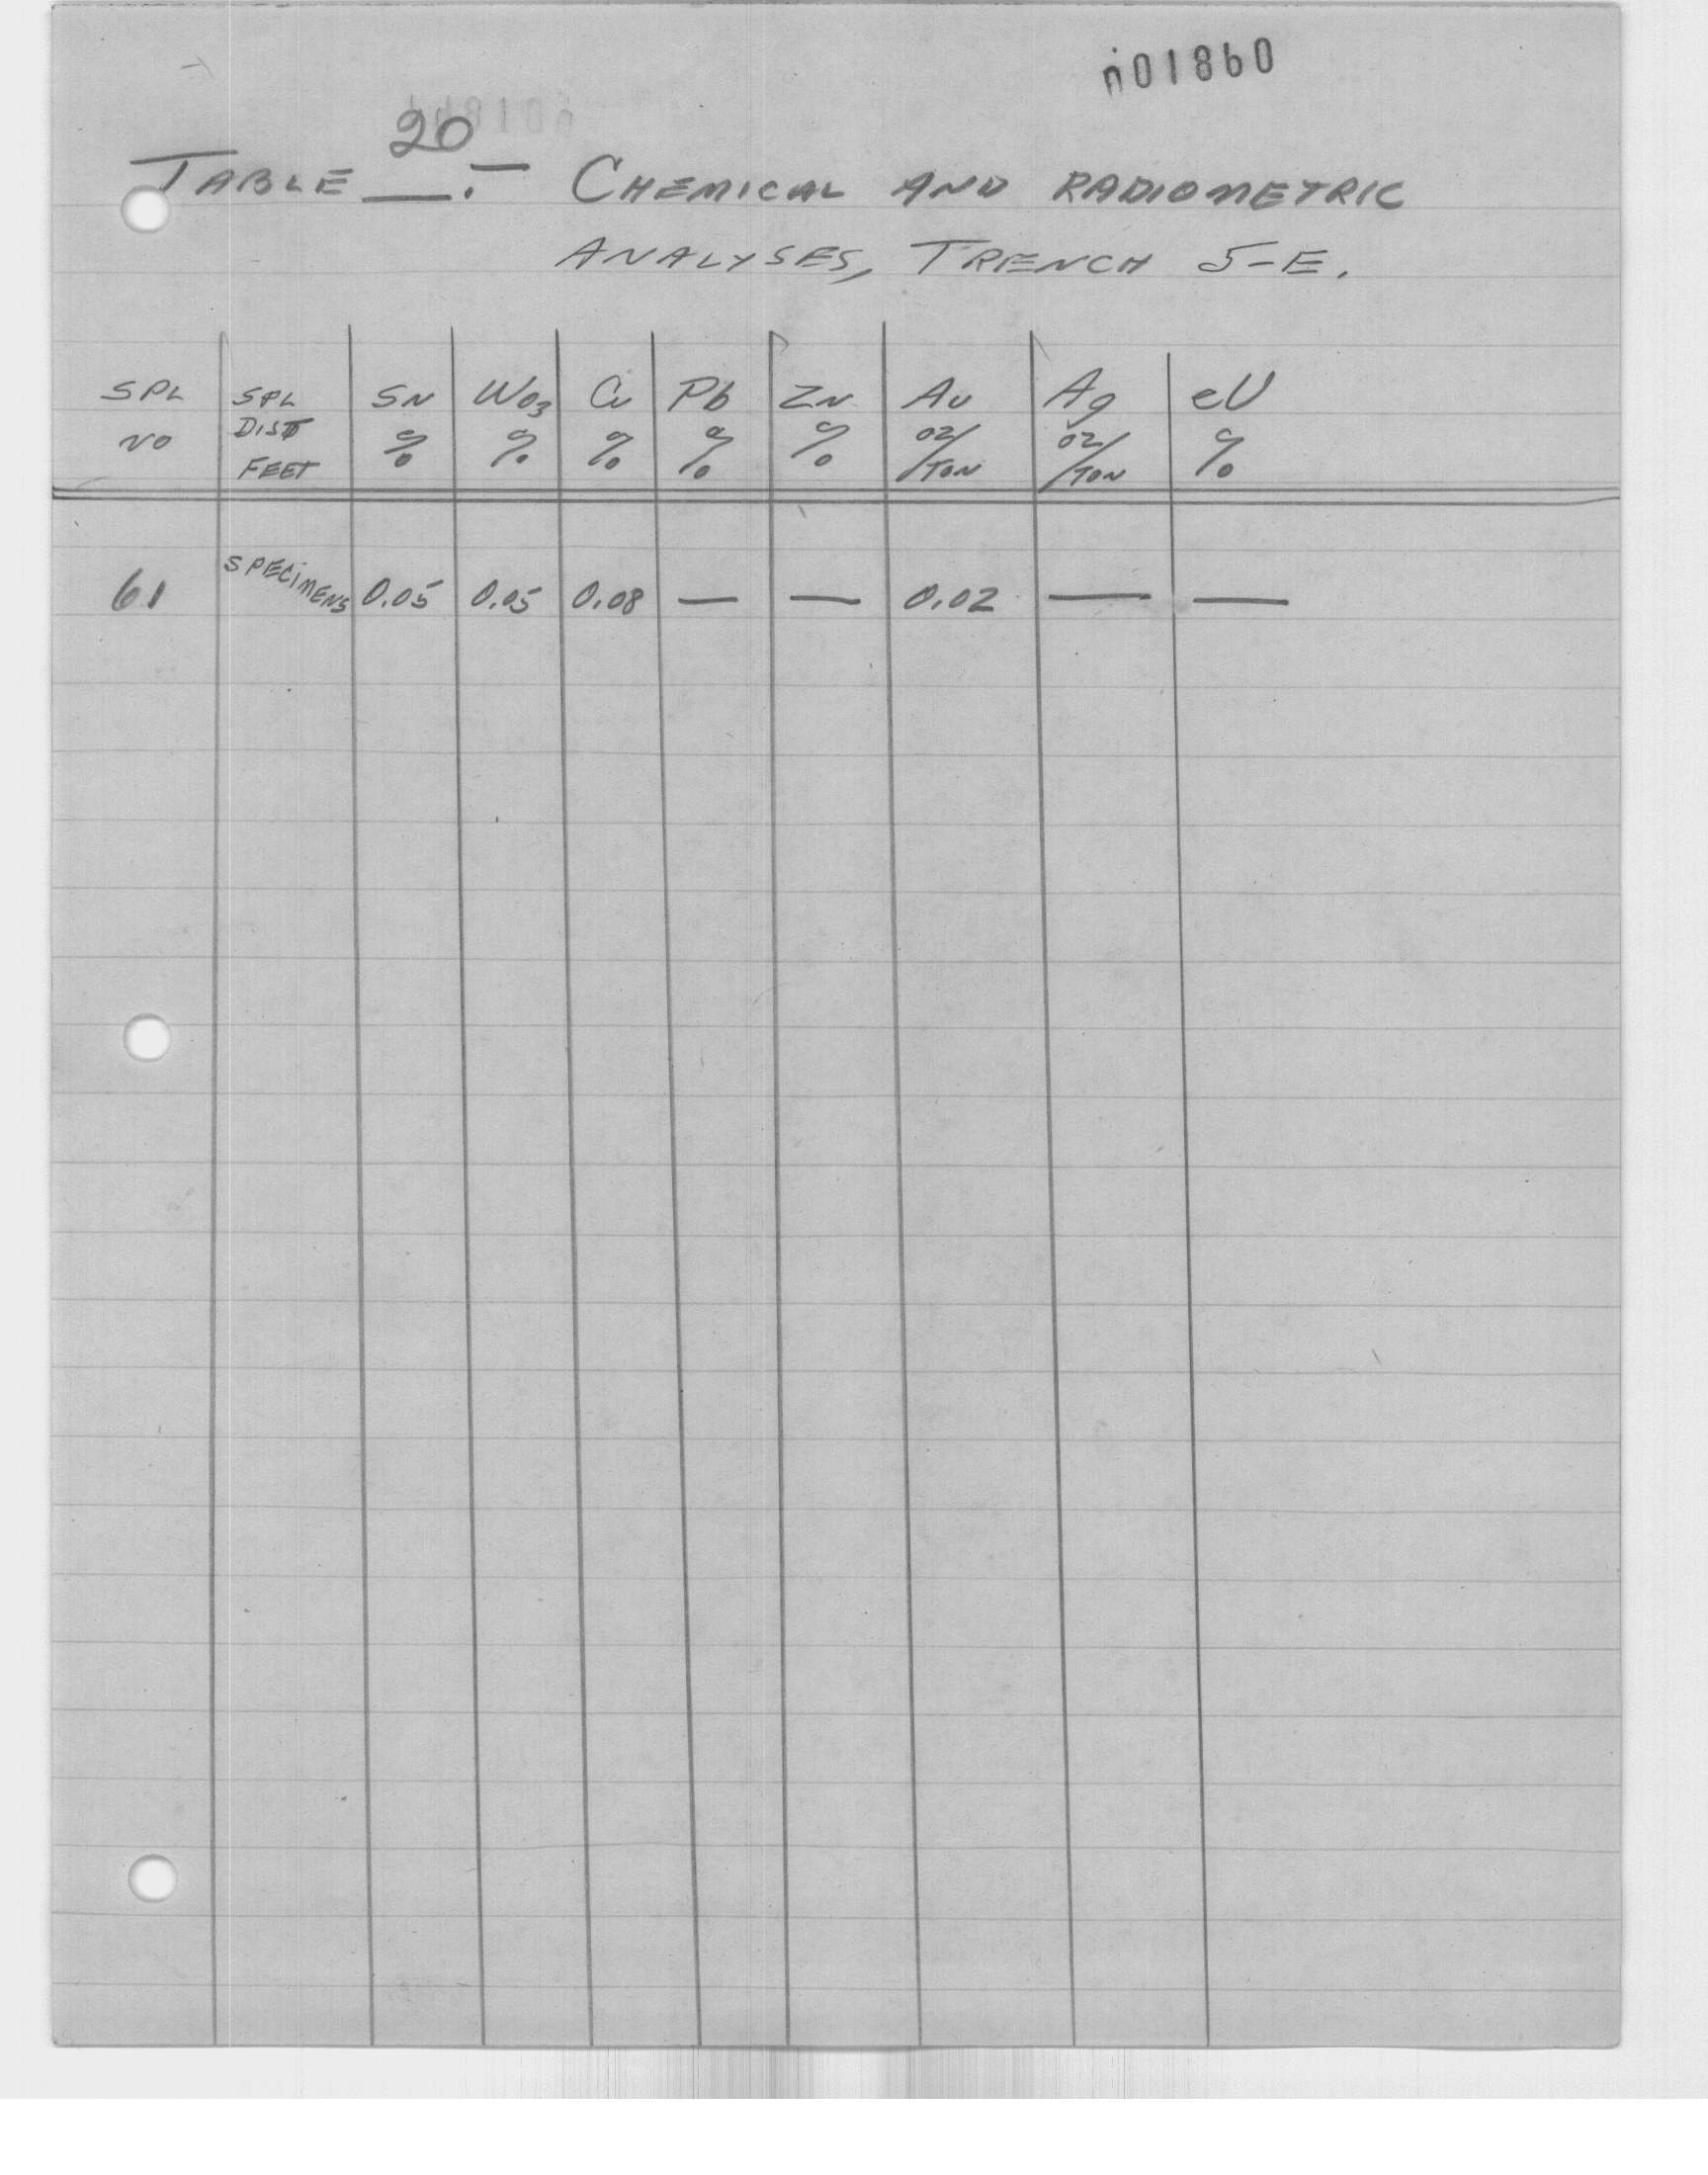 001860
20
TABLE __.— CHEMICAL AND RADIOMETRIC
ANALYSES, TRENCH 5-E.
SPL NO | SPL DIST FEET | SN % | WO3 % | Cu % | Pb % | ZN % | Au OZ/TON | Ag OZ/TON | eU %
61 | SPECIMENS | 0.05 | 0.05 | 0.08 | — | — | 0.02 | — | —